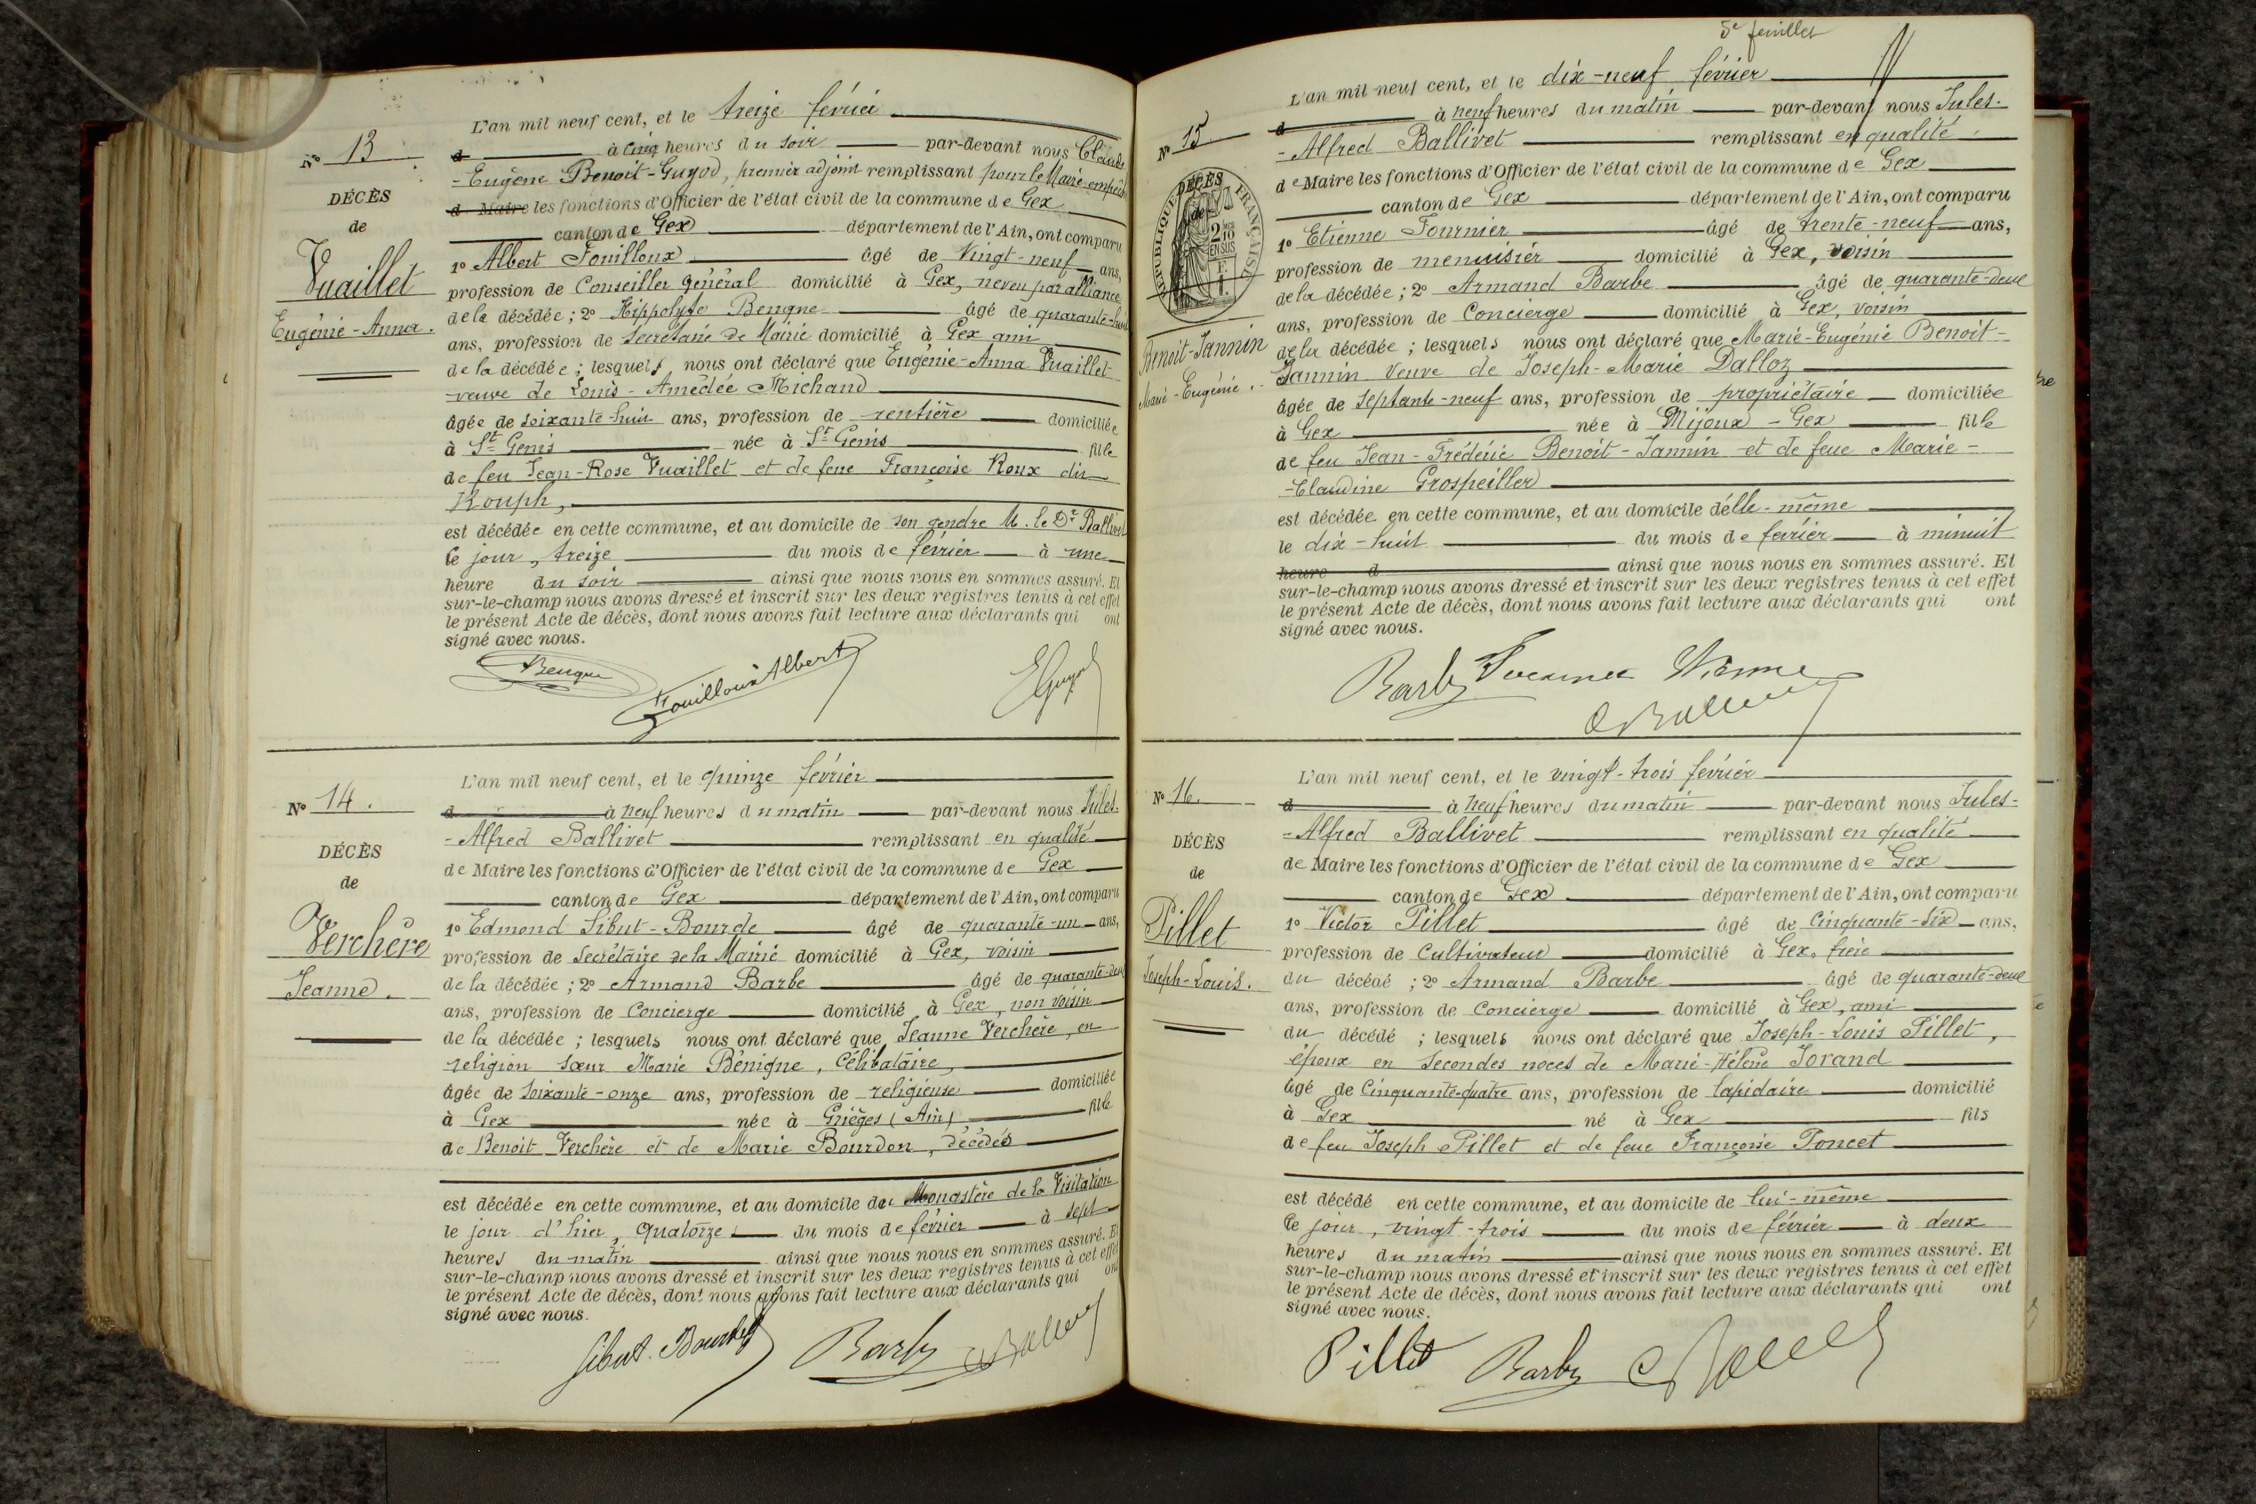 N° 13
DÉCÈS
de
Vuaillet
Eugénie-Anna.
L'an mil neuf cent, et le treize février
d à cinq heures du soir par-devant nous Claude
-Eugène Benoit-Guyod, premier adjoint remplissant pour le Maire empêché
d Maire les fonctions d'Officier de l'état civil de la commune de Gex
canton de Gex département de l'Ain, ont comparu
1° Albert Fouilloux âgé de vingt-neuf ans,
profession de Conseiller général domicilié à Gex, neveu par alliance
de la décédée; 2° Hippolyte Bengne âgé de quarante-huit
ans, profession de Secrétaire de Mairie domicilié à Gex ami
de la décédée; lesquels nous ont déclaré que Eugénie-Anna Vuaillet
veuve de Louis-Amédée Michaud
âgée de soixante-huit ans, profession de rentière domiciliée
à St Genis née à St Genis fille
de feu Jean-Rose Vuaillet et de feue Françoise Roux dit
Rouph,
est décédée en cette commune, et au domicile de son gendre M. le Dr Ballivet
le jour, treize du mois de février à une
heure du soir ainsi que nous nous en sommes assuré. Et
sur-le-champ nous avons dressé et inscrit sur les deux registres tenus à cet effet
le présent Acte de décès, dont nous avons fait lecture aux déclarants qui ont
signé avec nous.
Bengne Fouilloux Albert EGuyod
N° 14.
DÉCÈS
de
Verchère
Jeanne.
L'an mil neuf cent, et le quinze février
d à neuf heures du matin par-devant nous Jules-
-Alfred Ballivet remplissant en qualité
de Maire les fonctions d'Officier de l'état civil de la commune de Gex
canton de Gex département de l'Ain, ont comparu
1° Edmond Sibut-Bourde âgé de quarante-un ans,
profession de Secrétaire de la Mairie domicilié à Gex, voisin
de la décédée; 2° Armand Barbe âgé de quarante-deux
ans, profession de Concierge domicilié à Gex, non voisin
de la décédée; lesquels nous ont déclaré que Jeanne Verchère, en
religion sœur Marie Bénigne, Célibataire,
âgée de soixante-onze ans, profession de religieuse domiciliée
à Gex née à Grièges (Ain), fille
de Benoit Verchère et de Marie Bourdon, décédés
est décédée en cette commune, et au domicile du Monastère de la Visitation
le jour d'hier, quatorze du mois de février à sept
heures du matin ainsi que nous nous en sommes assuré. Et
sur-le-champ nous avons dressé et inscrit sur les deux registres tenus à cet effet
le présent Acte de décès, dont nous avons fait lecture aux déclarants qui ont
signé avec nous.
Sibut-Bourde Barbe A Ballivet
5e feuillet
N° 15
DÉCÈS
de
RÉPUBLIQUE FRANÇAISE
2/10
EN SUS
1 F.
Benoit-Jannin
Marie-Eugénie.
L'an mil neuf cent, et le dix-neuf février
d à neuf heures du matin par-devant nous Jules-
-Alfred Ballivet remplissant en qualité
de Maire les fonctions d'Officier de l'état civil de la commune de Gex
canton de Gex département de l'Ain, ont comparu
1° Etienne Fournier âgé de trente-neuf ans,
profession de menuisier domicilié à Gex, voisin
de la décédée; 2° Armand Barbe âgé de quarante-deux
ans, profession de Concierge domicilié à Gex, voisin
de la décédée; lesquels nous ont déclaré que Marie-Eugénie Benoit-
Jannin veuve de Joseph-Marie Dalloz
âgée de septante-neuf ans, profession de propriétaire domiciliée
à Gex née à Mijoux-Gex fille
de feu Jean-Frédéric Benoit-Jannin et de feue Marie-
-Claudine Grospeiller
est décédée en cette commune, et au domicile d'elle-même
le dix-huit du mois de février à minuit
heure d ainsi que nous nous en sommes assuré. Et
sur-le-champ nous avons dressé et inscrit sur les deux registres tenus à cet effet
le présent Acte de décès, dont nous avons fait lecture aux déclarants qui ont
signé avec nous.
Barbe Fournier Etienne
A Ballivet
N° 16.
DÉCÈS
de
Pillet
Joseph-Louis.
L'an mil neuf cent, et le vingt-trois février
d à neuf heures du matin par-devant nous Jules-
-Alfred Ballivet remplissant en qualité
de Maire les fonctions d'Officier de l'état civil de la commune de Gex
canton de Gex département de l'Ain, ont comparu
1° Victor Pillet âgé de cinquante-six ans,
profession de Cultivateur domicilié à Gex, frère
du décédé; 2° Armand Barbe âgé de quarante-deux
ans, profession de Concierge domicilié à Gex, ami
du décédé; lesquels nous ont déclaré que Joseph-Louis Pillet,
époux en secondes noces de Marie-Hélène Jorand
âgé de Cinquante-quatre ans, profession de lapidaire domicilié
à Gex né à Gex fils
de feu Joseph Pillet et de feue Françoise Poncet
est décédé en cette commune, et au domicile de lui-même
le jour, vingt-trois du mois de février à deux
heures du matin ainsi que nous nous en sommes assuré. Et
sur-le-champ nous avons dressé et inscrit sur les deux registres tenus à cet effet
le présent Acte de décès, dont nous avons fait lecture aux déclarants qui ont
signé avec nous.
Pillet Barbe A Ballivet